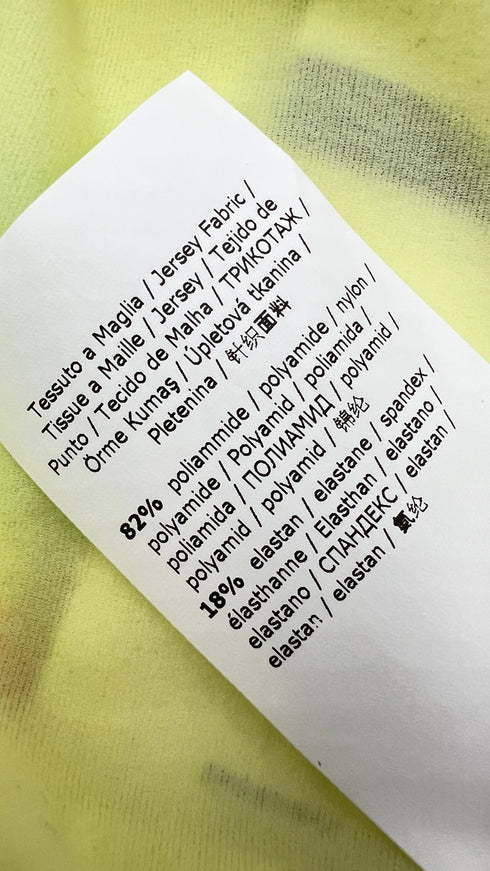 Tessuto a Maglia / Jersey Fabric /
Tissue a Maille / Jersey / Tejido de
Punto / Tecido de Malha / ТРИКОТАЖ /
Örme Kumaş / Úpletová tkanina /
Pletenina / 针织面料
82% poliammide / polyamide / nylon /
polyamide / Polyamid / poliamida /
poliamida / ПОЛИАМИД / polyamid /
polyamid / polyamid / 锦纶
18% elastan / elastane / spandex /
élasthanne / Elasthan / elastano /
elastano / СПАНДЕКС / elastan /
elastan / elastan / 氨纶